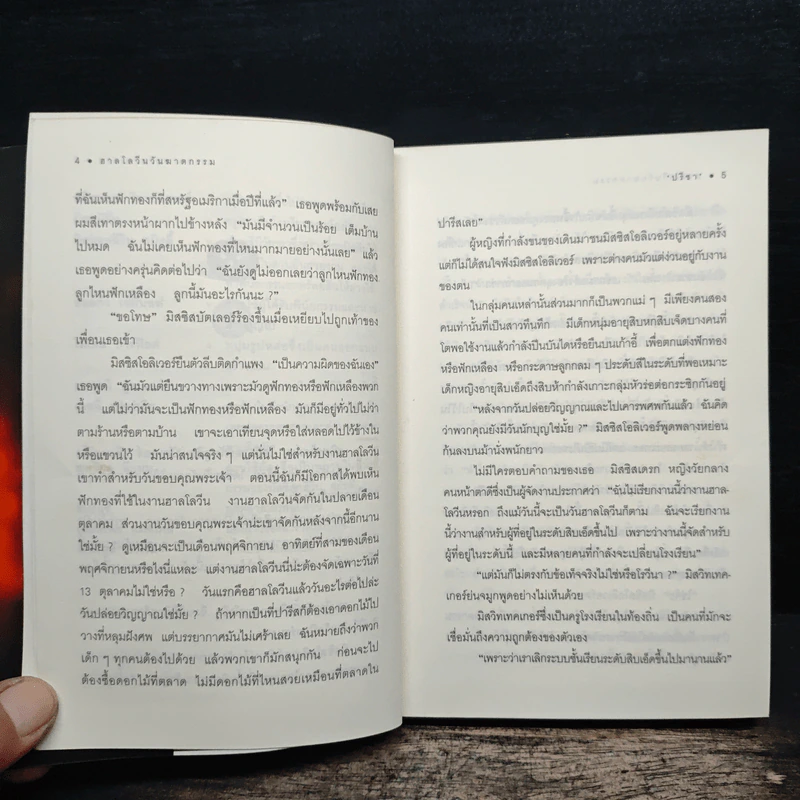 4 • ฮาลโลวีนวันฆาตกรรม
ที่ฉันเห็นฟักทองก็ที่สหรัฐอเมริกาเมื่อปีที่แล้ว” เธอพูดพร้อมกับเสย
ผมสีเทาตรงหน้าผากไปข้างหลัง “มันมีจำนวนเป็นร้อย เต็มบ้าน
ไปหมด ฉันไม่เคยเห็นฟักทองที่ไหนมากมายอย่างนั้นเลย” แล้ว
เธอพูดอย่างครุ่นคิดต่อไปว่า “ฉันยังดูไม่ออกเลยว่าลูกไหนฟักทอง
ลูกไหนฟักเหลือง ลูกนี้มันอะไรกันนะ ?”
“ขอโทษ” มิสซิสบัตเลอร์ร้องขึ้นเมื่อเหยียบไปถูกเท้าของ
เพื่อนเธอเข้า
มิสซิสโอลิเวอร์ยืนตัวลีบติดกำแพง “เป็นความผิดของฉันเอง”
เธอพูด “ฉันมัวแต่ยืนขวางทางเพราะมัวดูฟักทองหรือฟักเหลืองพวก
นี้ แต่ไม่ว่ามันจะเป็นฟักทองหรือฟักเหลือง มันก็มีอยู่ทั่วไปไม่ว่า
ตามร้านหรือตามบ้าน เขาจะเอาเทียนจุดหรือใส่หลอดไปไว้ข้างใน
หรือแขวนไว้ มันน่าสนใจจริง ๆ แต่นั่นไม่ใช่สำหรับงานฮาลโลวีน
เขาทำสำหรับวันขอบคุณพระเจ้า ตอนนี้ฉันก็มีโอกาสได้พบเห็น
ฟักทองที่ใช้ในงานฮาลโลวีน งานฮาลโลวีนจัดกันในปลายเดือน
ตุลาคม ส่วนงานวันขอบคุณพระเจ้าน่ะเขาจัดกันหลังจากนี้อีกนาน
ใช่มั้ย ? ดูเหมือนจะเป็นเดือนพฤศจิกายน อาทิตย์ที่สามของเดือน
พฤศจิกายนหรือไงนี่แหละ แต่งานฮาลโลวีนนี่น่ะต้องจัดเฉพาะวันที่
13 ตุลาคมไม่ใช่หรือ ? วันแรกคือฮาลโลวีนแล้ววันอะไรต่อไปล่ะ
วันปล่อยวิญญาณใช่มั้ย ? ถ้าหากเป็นที่ปารีสก็ต้องเอาดอกไม้ไป
วางที่หลุมฝังศพ แต่บรรยากาศมันไม่เศร้าเลย ฉันหมายถึงว่าพวก
เด็ก ๆ ทุกคนต้องไปด้วย แล้วพวกเขาก็มักสนุกกัน ก่อนจะไป
ต้องซื้อดอกไม้ที่ตลาด ไม่มีดอกไม้ที่ไหนสวยเหมือนที่ตลาดใน
“ปริชา” • 5
ปารีสเลย”
ผู้หญิงที่กำลังขนของเดินมาชนมิสซิสโอลิเวอร์อยู่หลายครั้ง
แต่ก็ไม่ได้สนใจฟังมิสซิสโอลิเวอร์ เพราะต่างคนมัวแต่ง่วนอยู่กับงาน
ของตน
ในกลุ่มคนเหล่านั้นส่วนมากก็เป็นพวกแม่ ๆ มีเพียงคนสอง
คนเท่านั้นที่เป็นสาวทึนทึก มีเด็กหนุ่มอายุสิบหกสิบเจ็ดบางคนที่
โตพอใช้งานแล้วกำลังปีนบันไดหรือยืนบนเก้าอี้ เพื่อตกแต่งฟักทอง
หรือฟักเหลือง หรือกระดาษลูกกลม ๆ ประดับสีในระดับที่พอเหมาะ
เด็กหญิงอายุสิบเอ็ดถึงสิบห้ากำลังเกาะกลุ่มหัวร่อต่อกระซิกกันอยู่
“หลังจากวันปล่อยวิญญาณและไปเคารพศพกันแล้ว ฉันคิด
ว่าพวกคุณยังมีวันนักบุญใช่มั้ย ?” มิสซิสโอลิเวอร์พูดพลางหย่อน
ก้นลงบนม้านั่งพนักยาว
ไม่มีใครตอบคำถามของเธอ มิสซิสเดรก หญิงวัยกลาง
คนหน้าตาดีซึ่งเป็นผู้จัดงานประกาศว่า “ฉันไม่เรียกงานนี้ว่างานฮาล-
โลวีนหรอก ถึงแม้วันนี้จะเป็นวันฮาลโลวีนก็ตาม ฉันจะเรียกงาน
นี้ว่างานสำหรับผู้ที่อยู่ในระดับสิบเอ็ดขึ้นไป เพราะว่างานนี้จัดสำหรับ
ผู้ที่อยู่ในระดับนี้ และมีหลายคนที่กำลังจะเปลี่ยนโรงเรียน”
“แต่มันก็ไม่ตรงกับข้อเท็จจริงไม่ใช่หรือโรวีนา ?” มิสวิทเทค-
เกอร์ย่นจมูกพูดอย่างไม่เห็นด้วย
มิสวิทเทคเกอร์ซึ่งเป็นครูโรงเรียนในท้องถิ่น เป็นคนที่มักจะ
เชื่อมั่นถึงความถูกต้องของตัวเอง
“เพราะว่าเราเลิกระบบชั้นเรียนระดับสิบเอ็ดขึ้นไปมานานแล้ว”